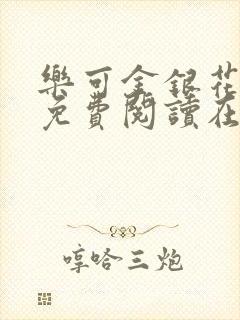 樂可金銀花
免費閱讀在
哼哈三炮